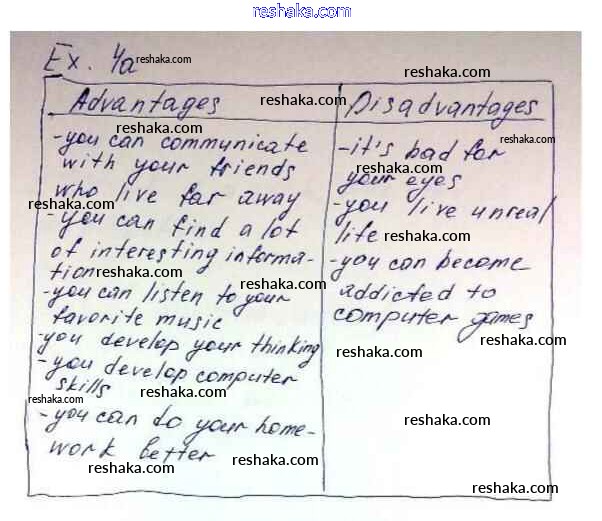 reshaka.com
Ex. 4a
reshaka.com
reshaka.com
Advantages
reshaka.com
-you can communicate
reshaka.com
with your friends
who live far away
reshaka.com
-you can find a lot
of interesting informa-
tion
reshaka.com
-you can listen to your
favorite music
-you develop your thinking
-you develop computer
skills
reshaka.com
reshaka.com
-you can do your home-
work better
reshaka.com
reshaka.com
Disadvantages
reshaka.com
-it's bad for
your eyes
reshaka.com
-you live unreal
life
reshaka.com
-you can become
addicted to
computer games
reshaka.com
reshaka.com
reshaka.com
reshaka.com